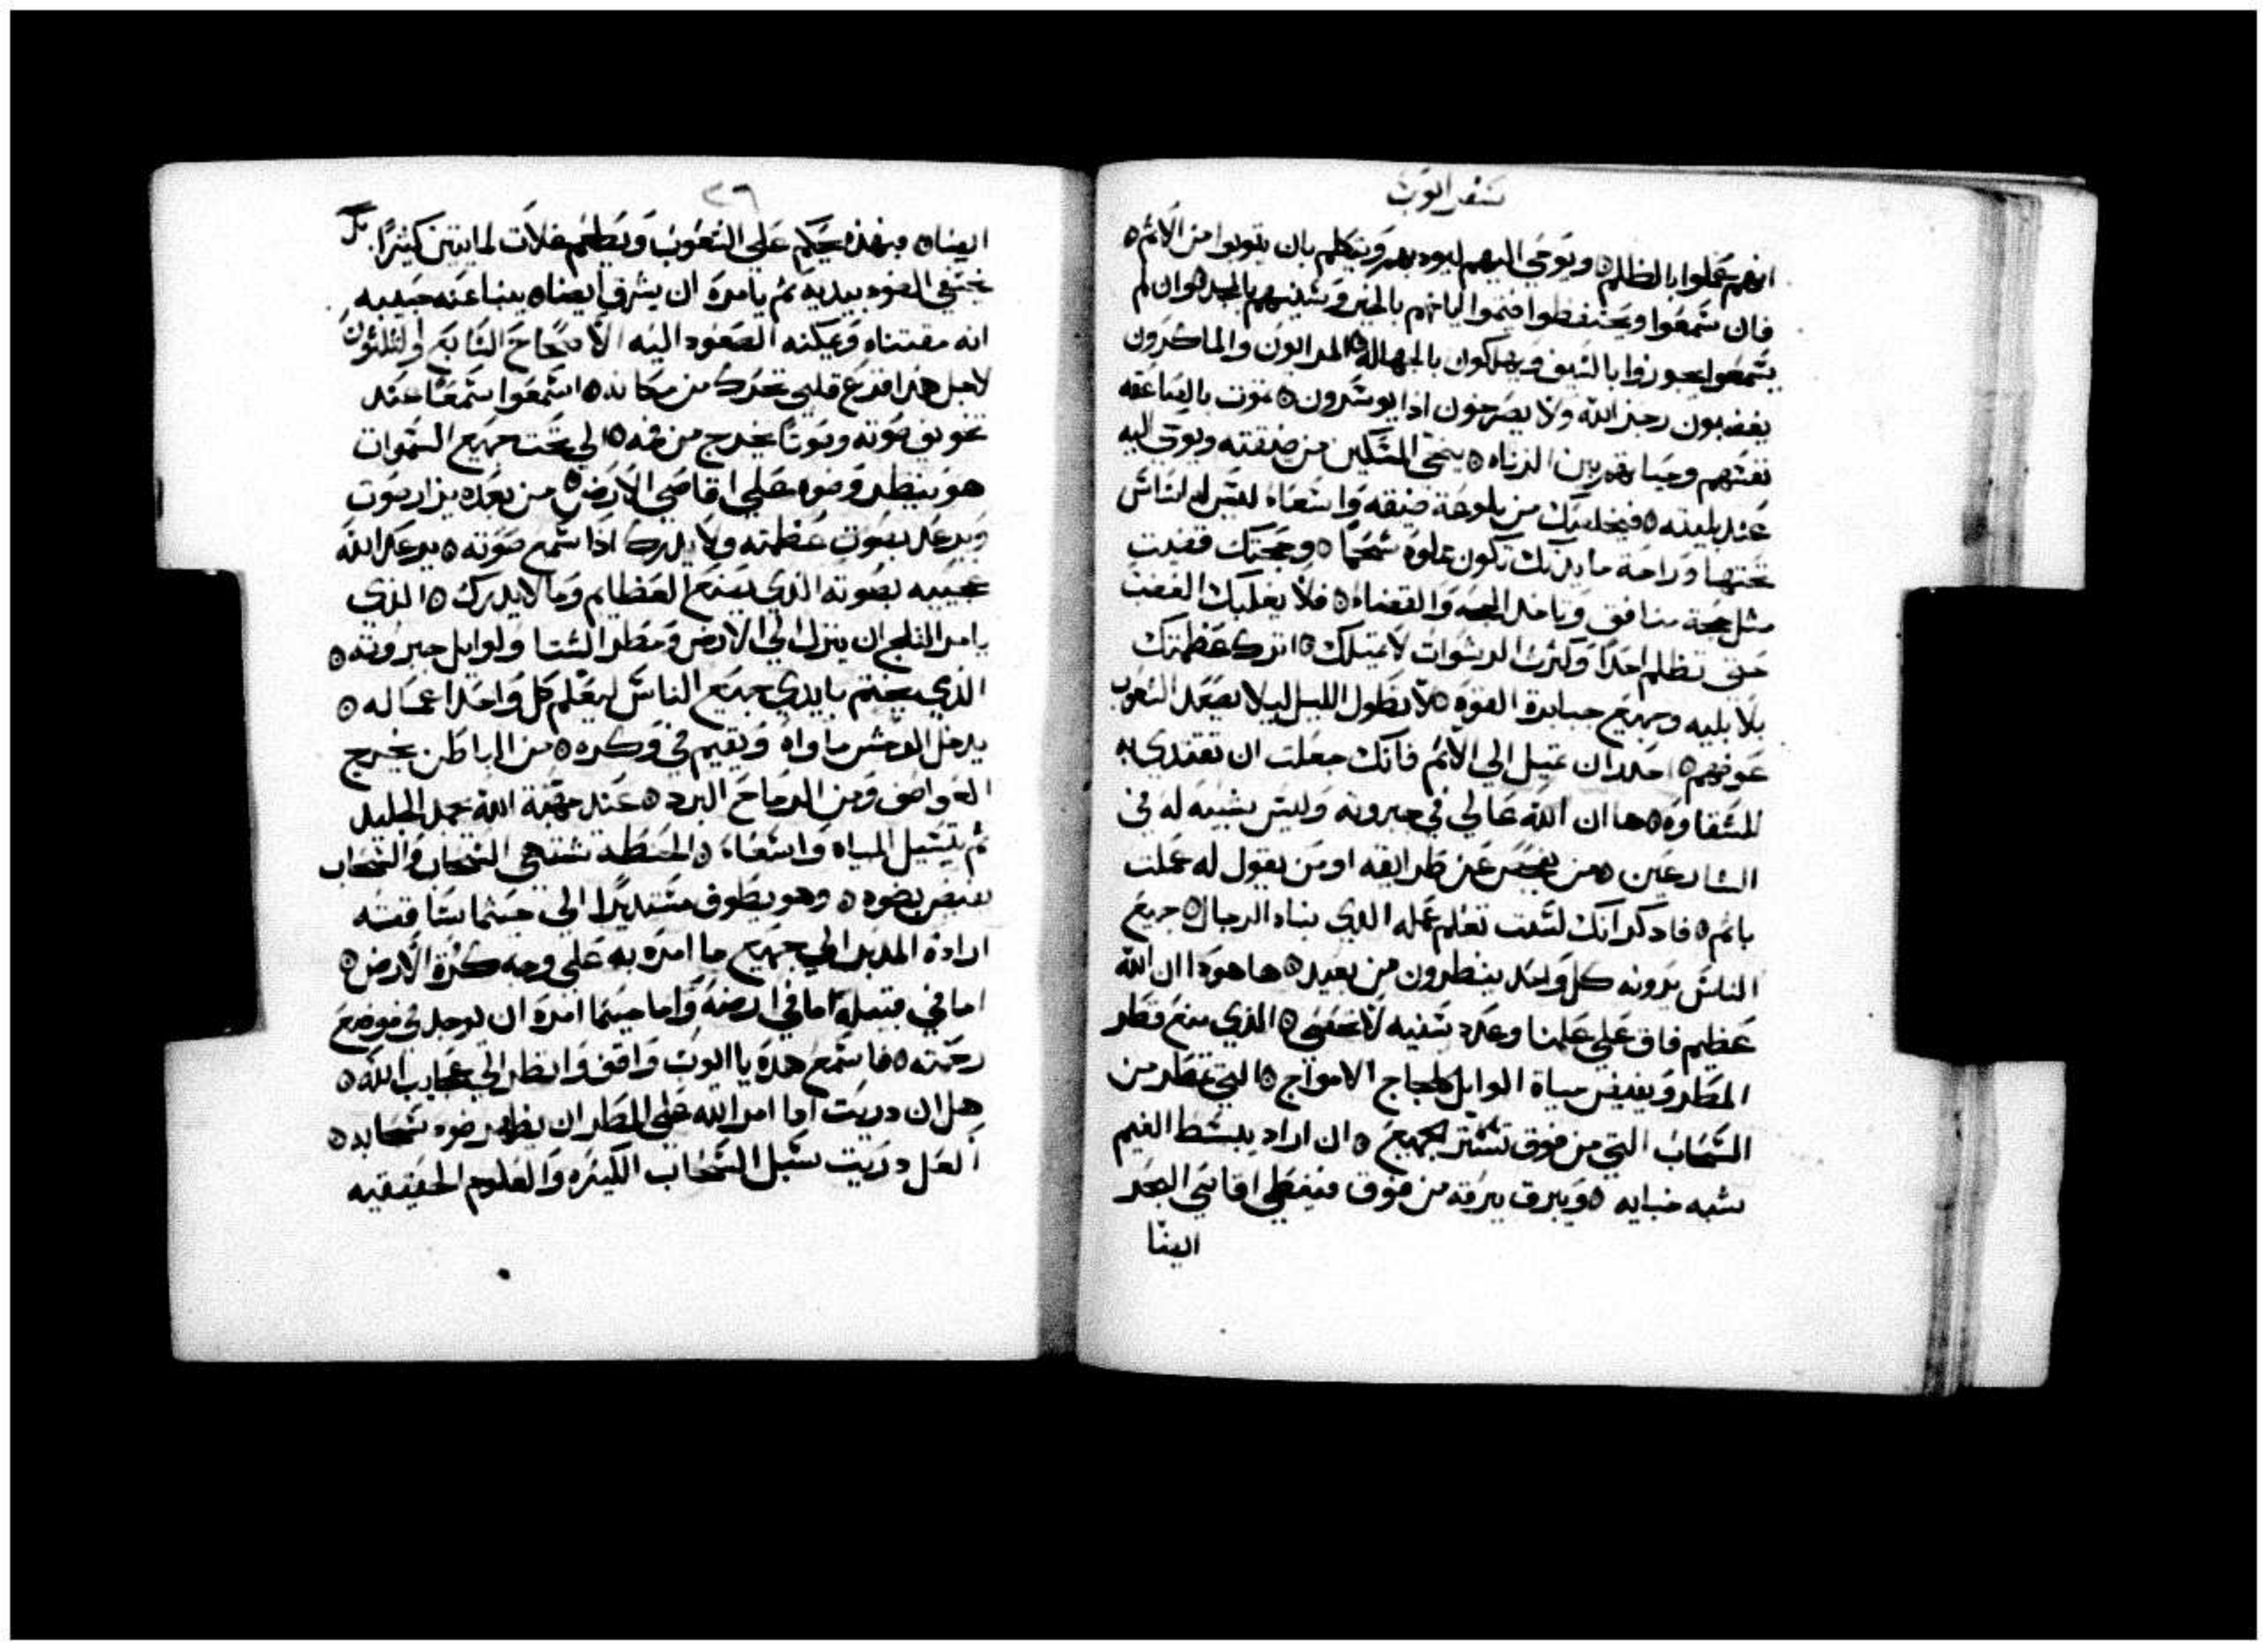 سفر ايوب
انهم عملوا بالظلم ٥ ويوحي اليهم ليودبهم ويتكلم بان يتوبوا من الاثم ٥
فان سمعوا ويحتفظوا فتموا ايامهم بالخير وسنينهم بالمجد ٥ وان لم
يسمعوا يجوزوا بالسيف ويهلكون بالجهالة ٥ المرايون والماكرون
يغضبون رجز الله ولا يصرخون اذا يوسرون ٥ تموت بالصاعقه
نفسهم وحياتهم بين الزناه ٥ ينجي المسكين من ضيقته ويوحي اليه
عند بليته ٥ فيخلصك من بلوعة ضيقه واسعاه لليس له اساس
تحتها وراحة مايدتك تكون مملوه شحما ٥ وحجتك قضيت
مثل حجة منافق وياخد الحجه والقضاء ٥ فلا يغلبك الغضب
حتي تظلم احدا وكثرت الرشوات لا تميلك ٥ اترك عظمتك
بلا بليه وجميع جبابرة القوه ٥ لا تطول الليل ليلا تصعد الشعوب
عوضهم ٥ احدر ان تميل الي الاثم فانك جعلت ان تقتدي به
للشقاوه ٥ ها ان الله عالي في جبروته وليس شبيه له في
الشارعين ٥ من يفحص عن طرايقه او من يقول له عملت
باثم ٥ فادكر انك لست تعلم عمله الذي نباه الرجال ٥ جميع
الناس يرونه كل واحد ينظرون من بعيد ٥ ها هودا ان الله
عظيم فاق علي علمنا وعدد سنيه لا تحصي ٥ الذي يمنع قطر
المطر ويفيض مياة الوابل كلجاج الامواج ٥ التي تقطر من
السحاب التي من فوق تستر الجميع ٥ ان اراد يبسط الغيم
شبه خبايه ٥ ويبرق ببرقه من فوق فيغطي اقاصي البحر
ايضا
٢٦
ايضاه فبهذه يحكم علي الشعوب ويطعم غلات لمايتين كثيرا. بل
يختفي الضوء بيديه ثم يامره ان يشرق ايضاه ينبا عنه حبيبه
انه مقتناه ويمكنه الصعود اليه الاصحاح السابع والثلثون
لاجل هذا فزع قلبي تحرك من مكانه ٥ اسمعوا سمعا عند
تخويف صوته وصوتا يخرج من فمه ٥ الي تحت جميع السموات
هو ينظر وضوه علي اقاصي الارض ٥ من بعده يزار صوت
ويرعد بصوت عظمته ولا يدرك اذا سمع صوته ٥ يرعد الله
عجيبه بصوته الذي يصنع العظايم وما لا يدرك ٥ الذي
يامر الثلج ان ينزل الي الارض ومطر الشتا ولوابل جبروته ٥
الذي يختم بايدي جميع الناس ليعلم كل واحد اعماله ٥
يدخل الوحش ماواه ويقيم في وكره ٥ من الباطن يخرج
العواصف ومن الرماح البرد ٥ عند مهبة الله يجمد الجليد
ثم تسيل المياه واسعاه ٥ الحنطة تشتهي السحاب والسحاب
تفيض بضوه ٥ وهو يطوف مستديرا الي حيثما ساقته
ارادة المدبر الي جميع ما امره به علي وجه كرة الارض ٥
اما في قبيلة اما في ارضه واما حيثما امره ان توجد في موضع
رحمته ٥ فاسمع هده يا ايوب واقف وانظر الي عجايب الله ٥
هل ان دريت اما امر الله علي المطر ان يظهر ضوه سحابه ٥
العل دريت سبل السحاب الكبيره والعلوم الحقيقيه